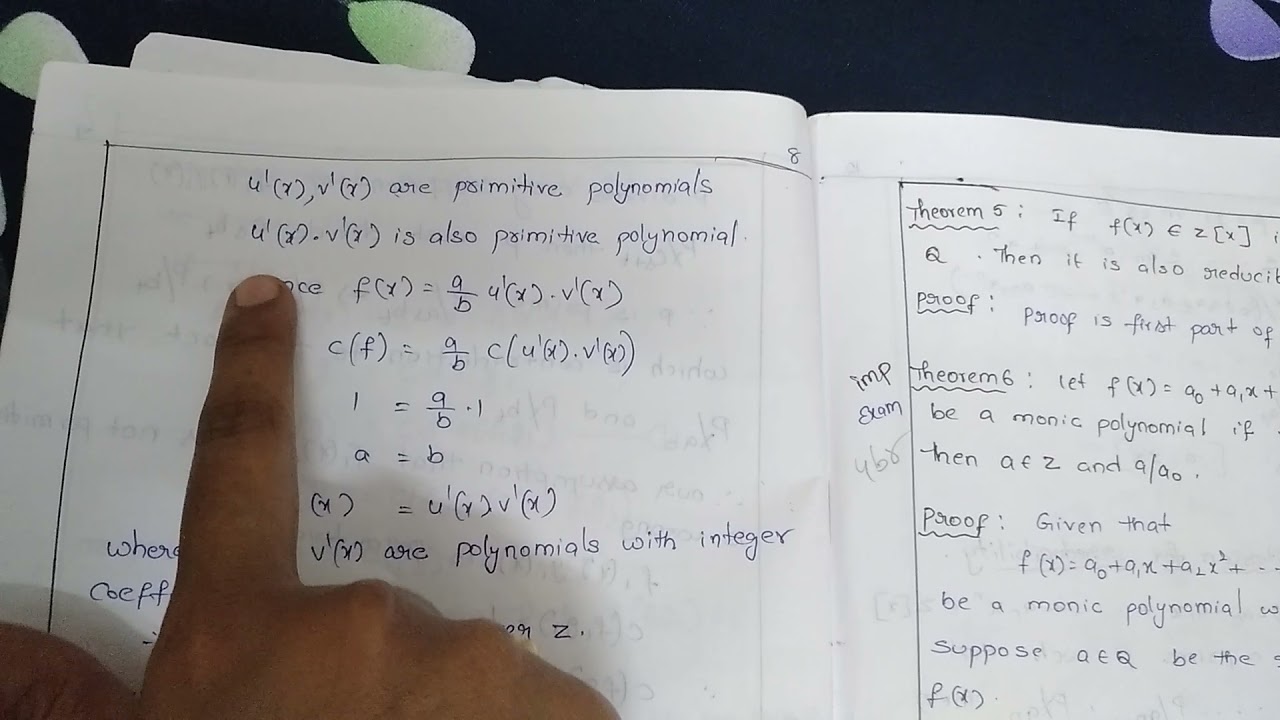 8
u'(x), v'(x) are primitive polynomials
u'(x). v'(x) is also primitive polynomial.
f(x) = a/b u'(x). v'(x)
c(f) = a/b c(u'(x). v'(x))
1 = a/b .1
a = b
(x) = u'(x) v'(x)
where v'(x) are polynomials with integer
Coeff
z.
Theorem 5 : If f(x) ∈ z[x]
Q . Then it is also reducib
Proof : Proof is first part of
imp
exam
Theorem 6 : let f(x) = a₀ + a₁x +
be a monic polynomial if
then a ∈ z and a/a₀ .
Proof : Given that
f(x) = a₀ + a₁x + a₂x² + - -
be a monic polynomial
suppose a ∈ Q be the
f(x).